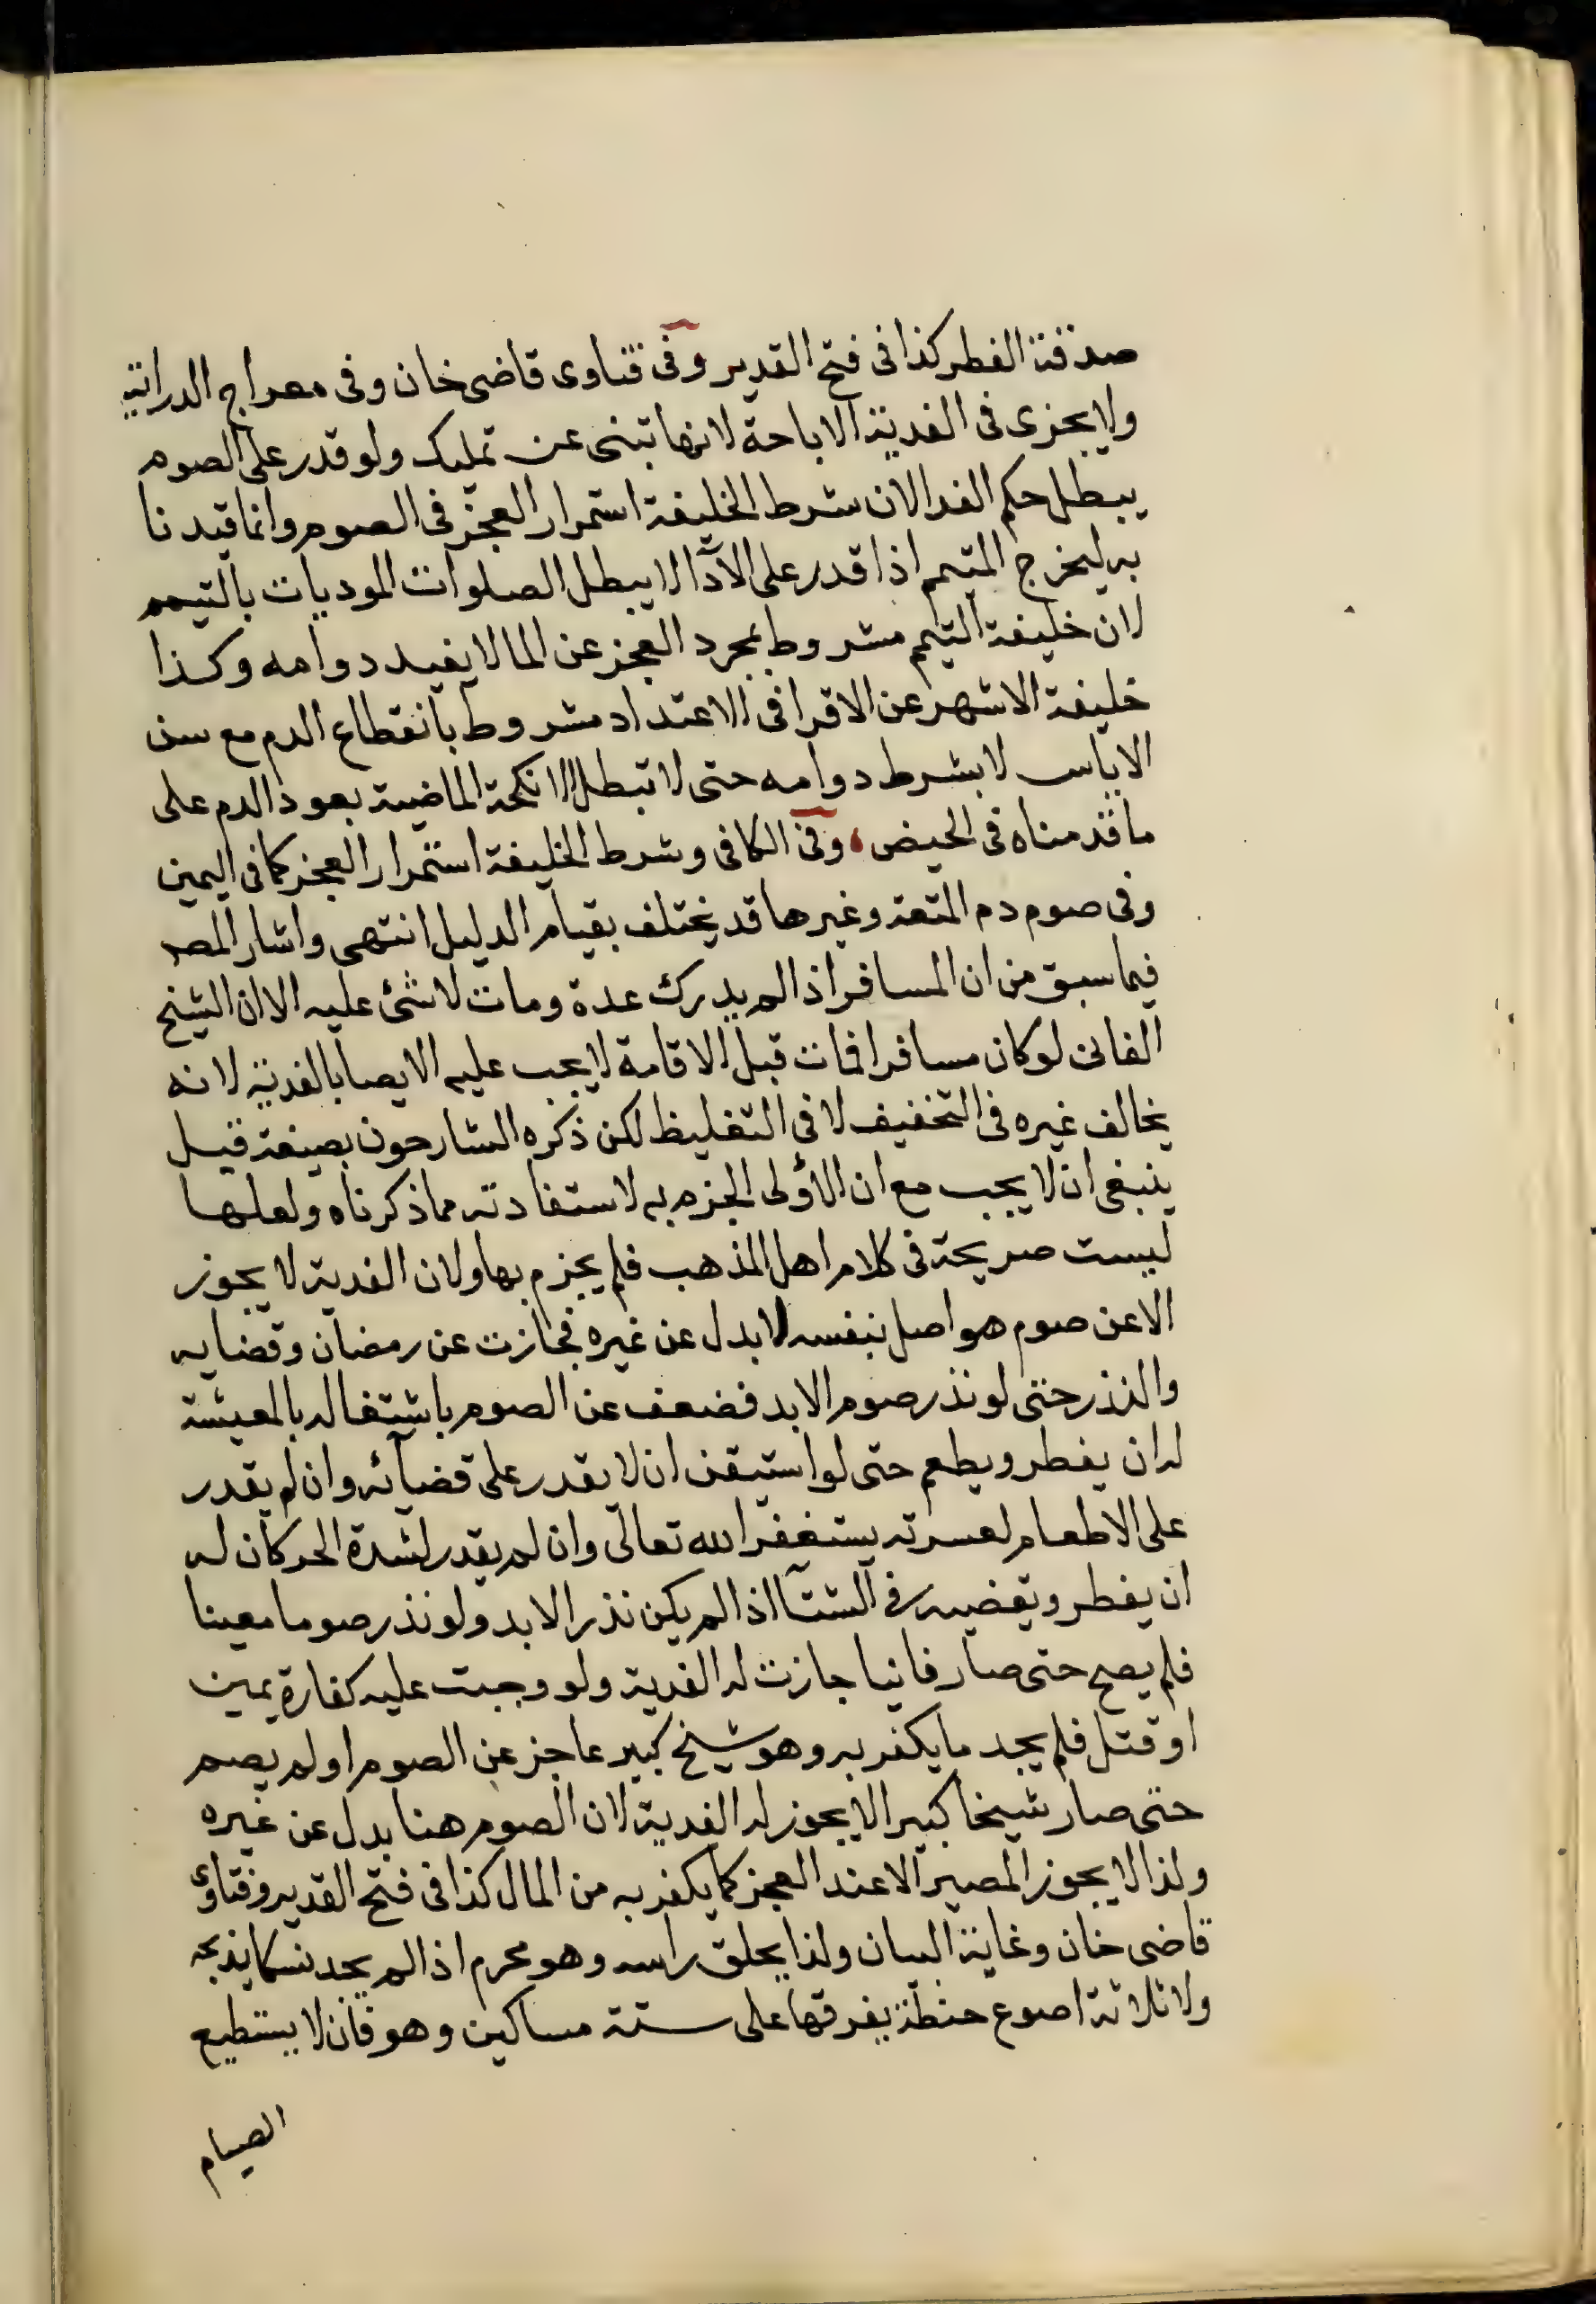 صدقة الفطر كذا فى فتح القدير وفى فتاوى قاضى خان وفى معراج الدراية
ولا يجزى فى الفدية الاباحة لانها تبنى عن تمليك ولو قدر على الصوم
يبطل حكم الفدا لان شرط الخليفة استمرار العجز فى الصوم وانما قيدنا
به ليخرج المتيمم اذا قدر على الآدا لا يبطل الصلوات الموديات بالتيمم
لان خليفة التيمم مشروط بمجرد العجز عن الما لا يفيد دوامه وكذا
خليفة الاشهر عن الاقرا فى الاعتداد مشروط بانقطاع الدم مع سن
الاياس لا بشرط دوامه حتى لا تبطل الانكحة الماضية بعود الدم على
ما قدمناه فى الحيض، وفى الكافى وشرط الخليفة استمرار العجز كما فى اليمين
وفى صوم دم المتعة وغيرها قد يختلف بقيام الدليل انتهى واشار المصـ
فيما سبق من ان المسافر اذا لم يدرك عدة ومات لا شئ عليه الا ان الشيخ
الفانى لو كان مسافرا فمات قبل الاقامة لا يجب عليه الايصا بالفدية لانه
يخالف غيره فى التخفيف لا فى التغليظ لكن ذكره الشارحون بصيغة قيل
ينبغى ان لا يجب مع ان الاؤلى الجزم به لاستفادته مما ذكرناه ولعلها
ليست صريحة فى كلام اهل المذهب فلم يجزم بها ولان الفدية لا يجوز
الا عن صوم هو اصل بنفسه لا بدل عن غيره فجازت عن رمضان وقضايه
والنذر حتى لو نذر صوم الابد فضعف عن الصوم باشتغاله بالمعيشة
له ان يفطر ويطعم حتى لو استيقن ان لا يقدر على قضآئه وان لم يقدر
على الاطعام لعسرته يستغفر الله تعالى وان لم يقدر لشدة الحر كان له
ان يفطر ويقضيه فى الشتآ اذا لم يكن نذر الابد ولو نذر صوما معينا
فلم يصح حتى صار فانيا جازت له الفدية ولو وجبت عليه كفارة يمين
او قتل فلم يجد ما يكفر به وهو شيخ كبير عاجز عن الصوم او لم يصم
حتى صار شيخا كبيرا لا يجوز له الفدية لان الصوم هنا بدل عن غيره
ولذا لا يجوز المصير الا عند العجز كما يكفر به من المال كذا فى فتح القدير وفتاوى
قاضى خان وغاية البيان ولذا يحلق راسه وهو محرم اذا لم يجد نسكا يذبحه
ولا ثلاثة اصوع حنطة يفرقها على ستة مساكين وهو فان لا يستطيع
الصيام